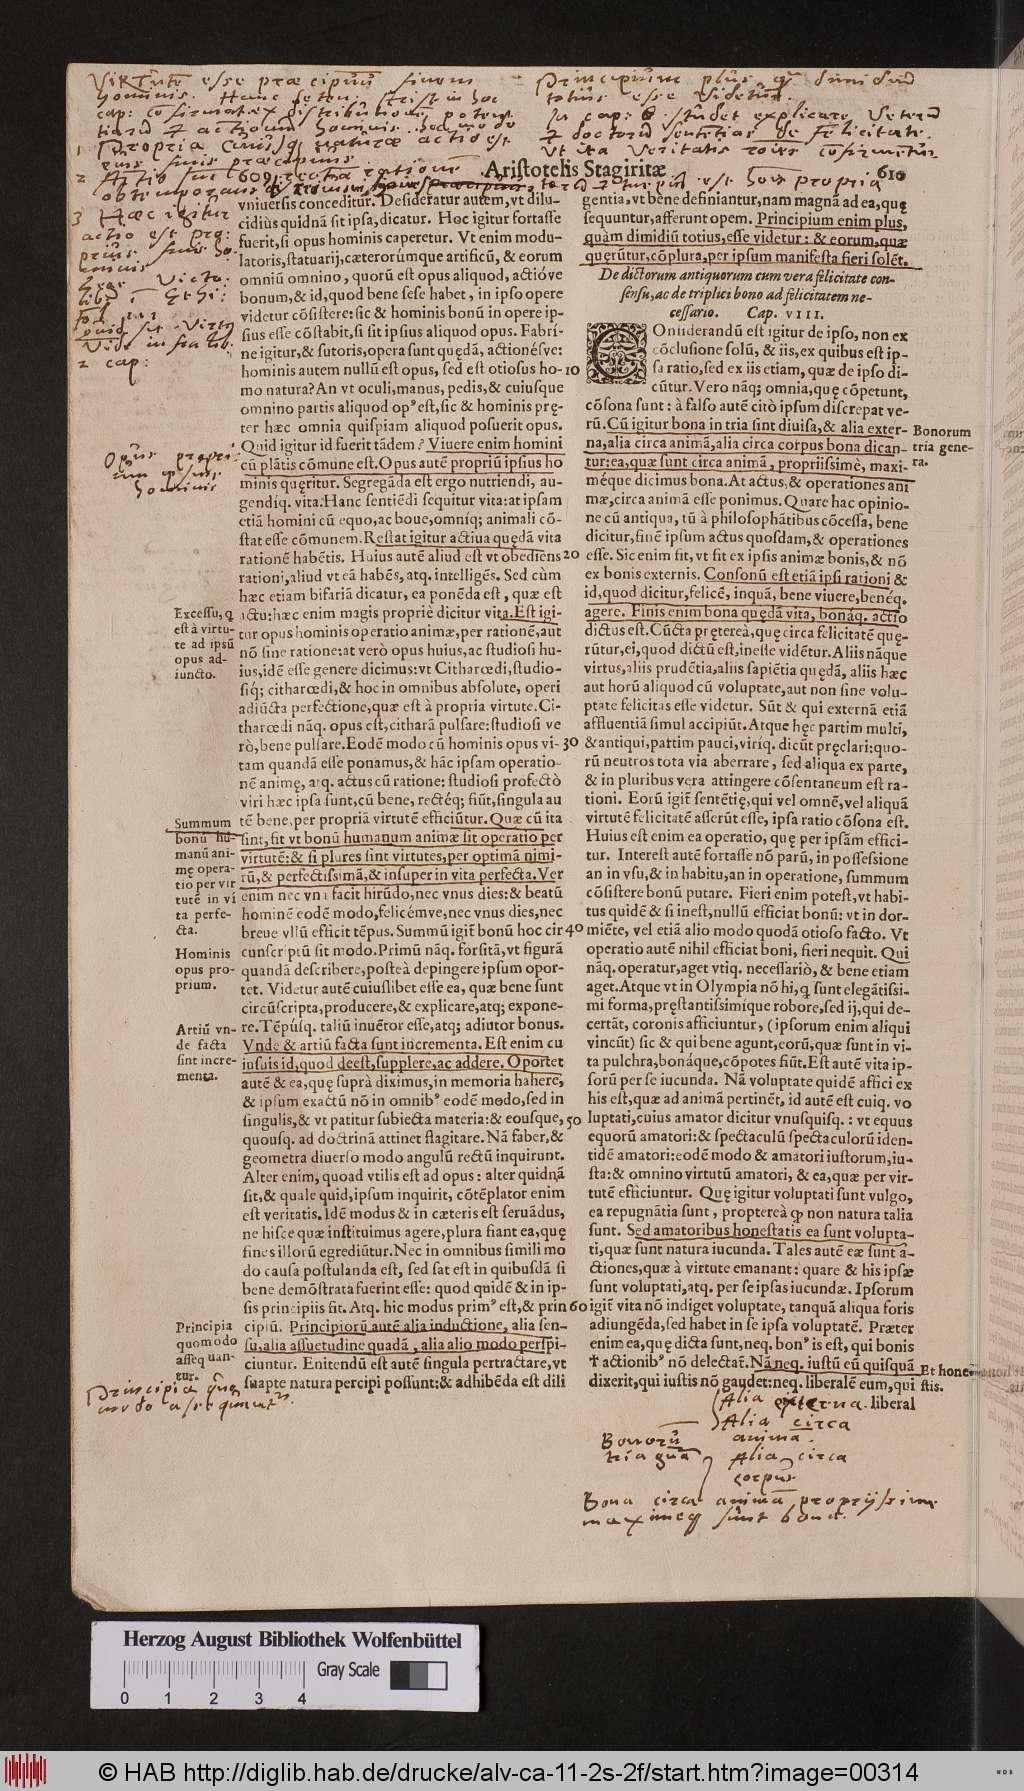 VIRTutē esse præcipuū finem
hominis. Hanc
cap: cōfirmat ex distributiōe potent
tiarū & actionū hominis. hoc modo
1 Propria cuiusq naturæ actio est
eius finis præcipuus
2 Actio sui rectā ratione
obtemperans
3 Hæc igitur
actio est pro:
prius finis ho
minis
Principium plus qm dimidiū
totius esse videtur.
In cap: 8 studet explicare veterū
& doctorū sententias de felicitate.
Vt ita veritatis robur cōfirmetur
est hois propria
609 Aristotelis Stagiritæ 610
vniuersis conceditur. Desideratur autem, vt dilu-
cidiùs quidnã sit ipsa, dicatur. Hoc igitur fortasse
fuerit, si opus hominis caperetur. Vt enim modu-
latoris, statuarij, cæterorúmque artificũ, & eorum
omniũ omnino, quorũ est opus aliquod, actióve
bonum, & id, quod bene sese habet, in ipso opere
videtur cõsistere: sic & hominis bonũ in opere ip-
sius esse cõstabit, si sit ipsius aliquod opus. Fabri-
ne igitur, & sutoris, opera sunt quędã, actionésve:
hominis autem nullũ est opus, sed est otiosus ho- 10
mo natura? An vt oculi, manus, pedis, & cuiusque
omnino partis aliquod op⁹ est, sic & hominis pręter
hæc omnia quispiam aliquod posuerit opus.
Quid igitur id fuerit tãdem? Viuere enim homini
cũ plãtis cõmune est. Opus autẽ propriũ ipsius ho
minis quęritur. Segregãda est ergo nutriendi, au-
gendíq. vita. Hanc sentiẽdi sequitur vita: at ipsam
etiã homini cũ equo, ac boue, omníq; animali cõ-
stat esse cõmunem. Restat igitur actiua quędã vita
rationẽ habẽtis. Huius autẽ aliud est vt obediẽns 20
rationi, aliud vt eã habẽs, atq. intelligẽs. Sed cùm
hæc etiam bifariã dicatur, ea ponẽda est, quæ est
actu: hæc enim magis propriè dicitur vita. Est igi-
tur opus hominis operatio animæ, per rationẽ, aut
nõ sine ratione: at verò opus huius, ac studiosi hu-
ius, idẽ esse genere dicimus: vt Citharœdi, studio-
síq; citharœdi, & hoc in omnibus absolute, operi
adiũcta perfectione, quæ est à propria virtute. Ci-
tharœdi nãq. opus est, citharã pulsare: studiosi ve
rò, bene pulsare. Eodẽ modo cũ hominis opus vi- 30
tam quandã esse ponamus, & hãc ipsam operatio-
nẽ animę, atq. actus cũ ratione: studiosi profectò
viri hæc ipsa sunt, cũ bene, rectéq; fiũt, singula au
tẽ bene, per propriã virtutẽ efficiũtur. Quæ cũ ita
sint, fit vt bonũ humanum animæ sit operatio per
virtutẽ: & si plures sint virtutes, per optimã nimi-
rũ, & perfectissimã, & insuper in vita perfecta. Ver
enim nec vna facit hirũdo, nec vnus dies: & beatũ
hominẽ eodẽ modo, felicémve, nec vnus dies, nec
breue vllũ efficit tẽpus. Summũ igit̃ bonũ hoc cir 40
cunscriptũ sit modo. Primũ nãq. forsitã, vt figurã
quandã describere, posteà depingere ipsum opor-
tet. Videtur autẽ cuiuslibet esse ea, quæ bene sunt
circũscripta, producere, & explicare, atq; expone-
re. Tẽpúsq. taliũ inuẽtor esse, atq; adiutor bonus.
Vnde & artiũ facta sunt incrementa. Est enim cu
iusuis id, quod deest, supplere, ac addere. Oportet
autẽ & ea, quę suprà diximus, in memoria habere,
& ipsum exactũ nõ in omnib⁹ eodẽ modo, sed in
singulis, & vt patitur subiecta materia: & eousque, 50
quousq. ad doctrinã attinet flagitare. Nã faber, &
geometra diuerso modo angulũ rectũ inquirunt.
Alter enim, quoad vtilis est ad opus: alter quidnã
sit, & quale quid, ipsum inquirit, cõtẽplator enim
est veritatis. Idẽ modus & in cæteris est seruãdus,
ne hisce quæ instituimus agere, plura fiant ea, quę
fines illorũ egrediũtur. Nec in omnibus simili mo
do causa postulanda est, sed sat est in quibusdã si
bene demõstrata fuerint esse: quod quidẽ & in ip-
sis principiis fit. Atq. hic modus prim⁹ est, & prin 60
cipiũ. Principiorũ autẽ alia inductione, alia sen-
su, alia assuetudine quadã, alia alio modo perspi-
ciuntur. Enitendũ est autẽ singula pertractare, vt
suapte natura percipi possunt: & adhibẽda est dili
Opus propri-
um ipsius
hominis
Excessu, q
est à virtu-
te ad ipsũ
opus ad-
iuncto.
Summum
bonũ hu-
manũ ani-
mę opera-
tio per vir
tutẽ in vi
ta perfe-
cta.
Hominis
opus pro-
prium.
Artiũ vn-
de facta
sint incre-
menta.
Principia
quomodo
assequan-
tur.
Principia quo
modo assequunt̃.
gentia, vt bene definiantur, nam magnã ad ea, quę
sequuntur, afferunt opem. Principium enim plus,
quàm dimidiũ totius, esse videtur: & eorum, quæ
quęrũtur, cõplura, per ipsum manifesta fieri solẽt.
De dictorum antiquorum cum vera felicitate con-
sensu, ac de triplici bono ad felicitatem ne-
cessario. Cap. VIII.
COnsiderandũ est igitur de ipso, non ex
cõclusione solũ, & iis, ex quibus est ip-
sa ratio, sed ex iis etiam, quæ de ipso di-
cũtur. Vero nãq; omnia, quę cõpetunt,
cõsona sunt: à falso autẽ citò ipsum discrepat ve-
rũ. Cũ igitur bona in tria sint diuisa, & alia exter-
na, alia circa animã, alia circa corpus bona dican-
tur: ea, quæ sunt circa animã, propriissimè, maxi-
méque dicimus bona. At actus, & operationes ani
mæ, circa animã esse ponimus. Quare hac opinio-
ne cũ antiqua, tũ à philosophãtibus cõcessa, bene
dicitur, finẽ ipsum actus quosdam, & operationes
esse. Sic enim fit, vt sit ex ipsis animæ bonis, & nõ
ex bonis externis. Consonũ est etiã ipsi rationi &
id, quod dicitur, felicẽ, inquã, bene viuere, benéq.
agere. Finis enim bona quędã vita, bonáq. actio
dictus est. Cũcta prętereà, quę circa felicitatẽ quę-
rũtur, ei, quod dictũ est, inesse vidẽtur. Aliis nãque
virtus, aliis prudẽtia, aliis sapiẽtia quędã, aliis hæc
aut horũ aliquod cũ voluptate, aut non sine volu-
ptate felicitas esse videtur. Sũt & qui externã etiã
affluentiã simul accipiũt. Atque hęc partim multi,
& antiqui, partim pauci, viriq. dicũt pręclari: quo-
rũ neutros tota via aberrare, sed aliqua ex parte,
& in pluribus vera attingere cõsentaneum est ra-
tioni. Eorũ igit̃ sentẽtię, qui vel omnẽ, vel aliquã
virtutẽ felicitatẽ asserũt esse, ipsa ratio cõsona est.
Huius est enim ea operatio, quę per ipsãm effici-
tur. Interest autẽ fortasse nõ parũ, in possessione
an in vsu, & in habitu, an in operatione, summum
cõsistere bonũ putare. Fieri enim potest, vt habi-
tus quidẽ & si inest, nullũ efficiat bonũ: vt in dor-
miẽte, vel etiã alio modo quodã otioso facto. Vt
operatio autẽ nihil efficiat boni, fieri nequit. Qui
nãq. operatur, aget vtiq. necessariò, & bene etiam
aget. Atque vt in Olympia nõ hi, q̃ sunt elegãtissi-
mi forma, pręstantissimíque robore, sed ij, qui de-
certãt, coronis afficiuntur, (ipsorum enim aliqui
vincũt) sic & qui bene agunt, eorũ, quæ sunt in vi-
ta pulchra, bonáque, cõpotes fiũt. Est autẽ vita ip-
sorũ per se iucunda. Nã voluptate quidẽ affici ex
his est, quæ ad animã pertinẽt, id autẽ est cuiq. vo
luptati, cuius amator dicitur vnusquisq.: vt equus
equorũ amatori: & spectaculũ spectaculorũ iden-
tidẽ amatori: eodẽ modo & amatori iustorum, iu-
sta: & omnino virtutũ amatori, & ea, quæ per vir-
tutẽ efficiuntur. Quę igitur voluptati sunt vulgo,
ea repugnãtia sunt, proptereà ꝙ non natura talia
sunt. Sed amatoribus honestatis ea sunt volupta-
ti, quæ sunt natura iucunda. Tales autẽ eæ sunt a-
ctiones, quæ à virtute emanant: quare & his ipsæ
sunt voluptati, atq. per se ipsas iucundæ. Ipsorum
igit̃ vita nõ indiget voluptate, tanquã aliqua foris
adiungẽda, sed habet in se ipsa voluptatẽ. Præter
enim ea, quę dicta sunt, neq. bon⁹ is est, qui bonis
† actionib⁹ nõ delectat̃. Nã neq. iustũ eũ quisquã
dixerit, qui iustis nõ gaudet: neq. liberalẽ eum, qui
liberal
Bonorum
tria gene-
ra.
Et hone-
stis.
Bonorū
tria gña
Alia externa
Alia circa
anima.
Alia circa
corpus
Bona circa animā propriissime
maximeq sunt bona.
Herzog August Bibliothek Wolfenbüttel
Gray Scale
0 1 2 3 4
© HAB http://diglib.hab.de/drucke/alv-ca-11-2s-2f/start.htm?image=00314